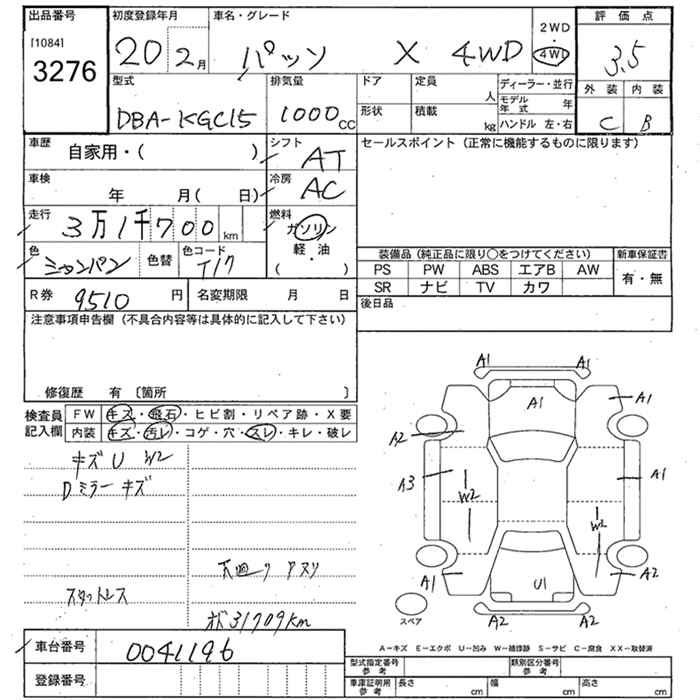 出品番号 初度登録年月 車名・グレード 2WD 4WD 評価点
[1084] 3276 20 2月 パッソ X 4WD 3.5
型式 排気量 ドア 定員 人 ディーラー・並行 外装 内装
DBA-KGC15 1000cc 形状 積載 kg モデル年式 年 ハンドル 左・右 C B
車歴 自家用・( ) シフト AT セールスポイント (正常に機能するものに限ります)
車検 年 月( 日) 冷房 AC
走行 3万1千700km 燃料 ガソリン 軽・油 ( )
色 シャンパン 色替 色コード T17
装備品 (純正品に限り○をつけてください) 新車保証書
PS PW ABS エアB AW 有・無
SR ナビ TV カワ
R券 9510円 名変期限 月 日 後日品
注意事項申告欄 (不具合内容等は具体的に記入して下さい)
修復歴 有 〔箇所 〕
検査員記入欄 FW キズ・飛石・ヒビ割・リペア跡・X要
内装 キズ・汚レ・コゲ・穴・スレ・キレ・破レ
キズ U W2
Dミラーキズ
スタットレス
ｵﾄﾞ31709km
A1 A1
A1 A1
A2
A3 W2 A1
W2
A1 U1 A2
A2 A2
スペア
A-キズ E-エクボ U-凹み W-補修跡 S-サビ C-腐食 XX-取替済
車台番号 0041196
登録番号
型式指定番号 参考 類別区分番号 参考
車庫証明用 参考 長さ cm 幅 cm 高さ cm